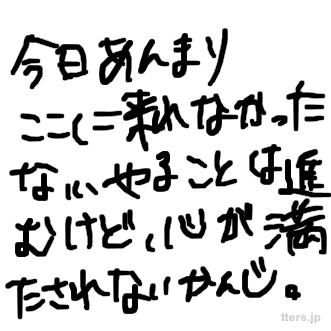 今日あんまり
ここに来れなかった
なぃ、やることは進
むけど、心が満
たされないかんじ。
tters.jp